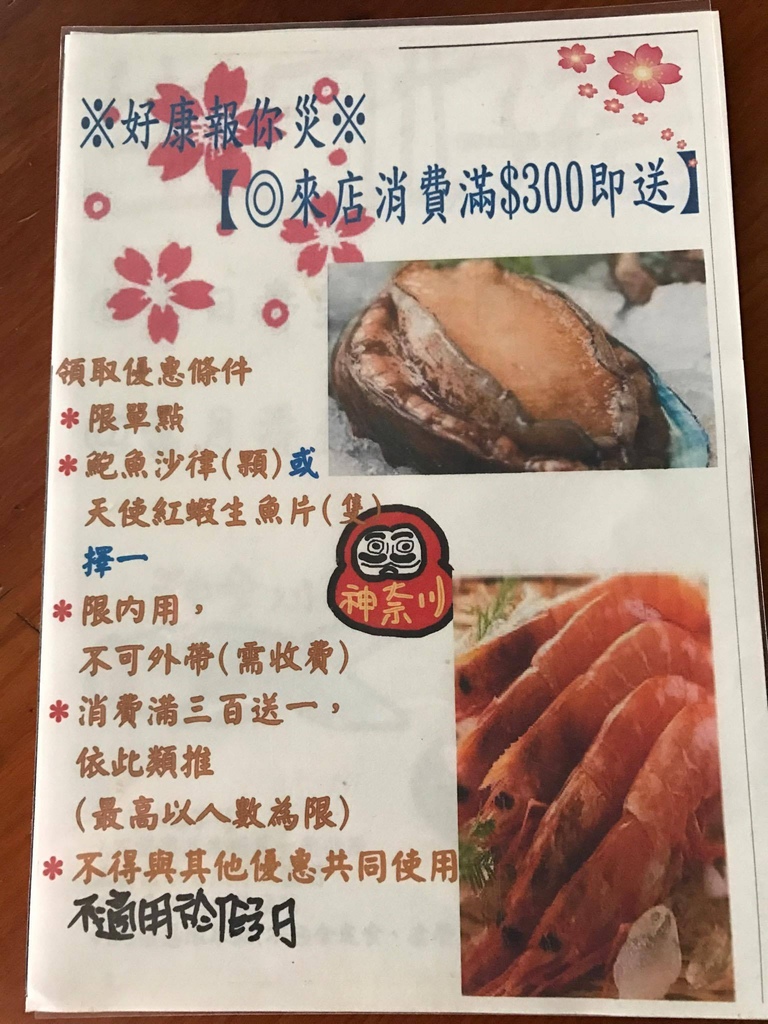 ※好康報你災※
【◎來店消費滿$300即送】
領取優惠條件
*限單點
*鮑魚沙律(顆)或
天使紅蝦生魚片(隻)
擇一
神奈川
*限內用，
不可外帶(需收費)
*消費滿三百送一，
依此類推
(最高以人數為限)
*不得與其他優惠共同使用
不適用於假日